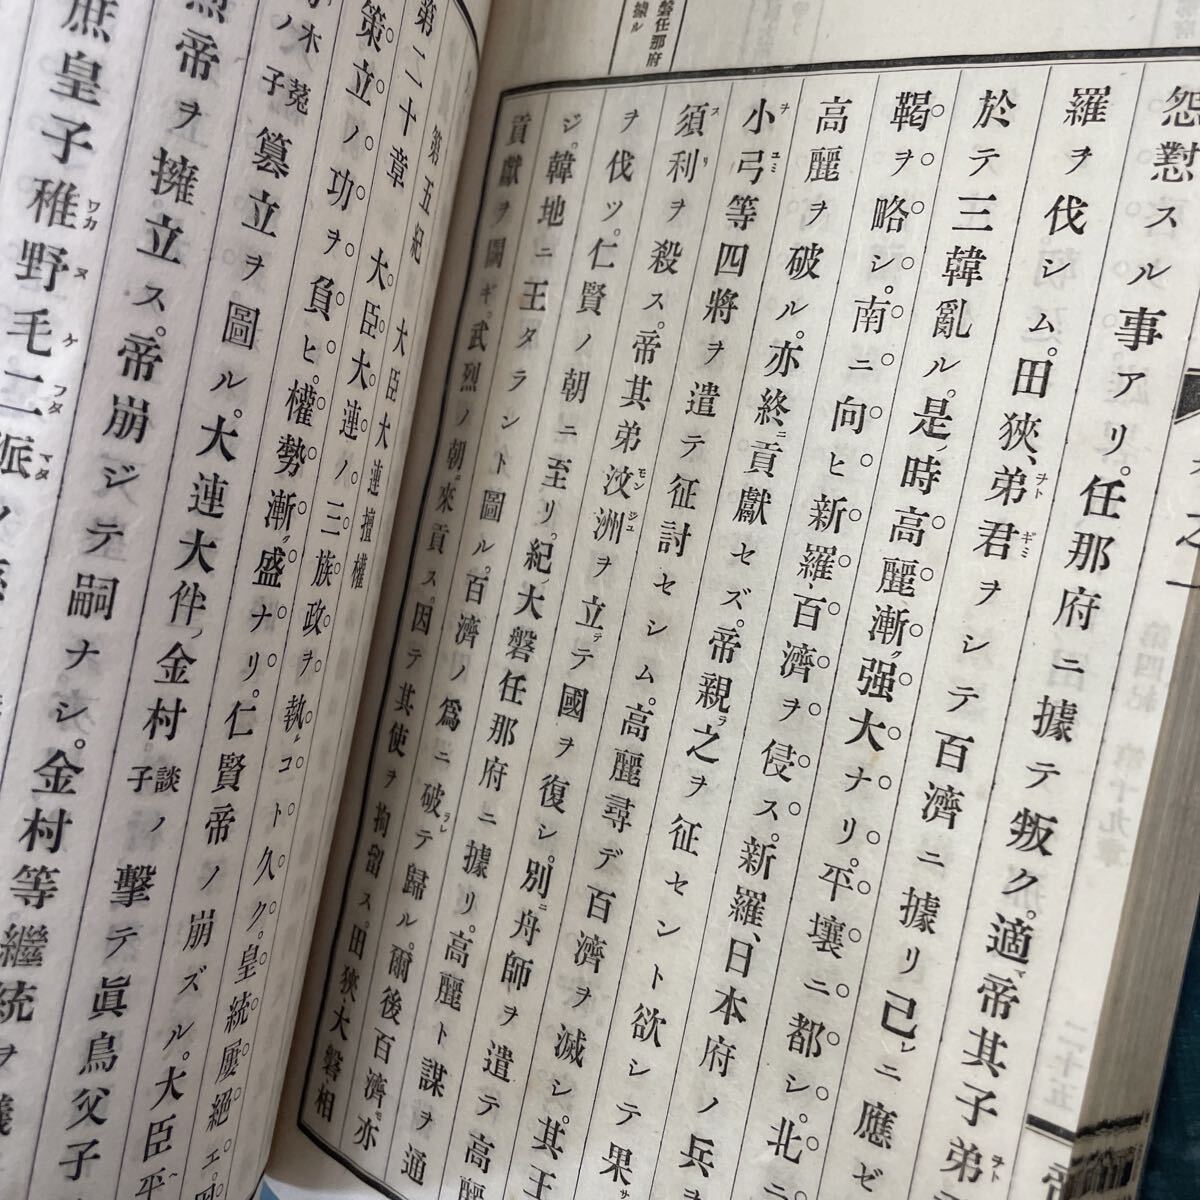 磐任那府
據ル
怨懟スル事アリ。任那府ニ據テ叛ク。適帝其子弟
羅ヲ伐シム。田狹、弟君ヲシテ百濟ニ據リ己レニ應ゼ
於テ三韓亂ル。是時高麗漸ク强大ナリ。平壤ニ都シ、北
鞨ヲ略シ。南ニ向ヒ新羅百濟ヲ侵ス。新羅、日本府ノ兵ヲ
高麗ヲ破ル。亦終ニ貢獻セズ。帝親ラ之ヲ征セント欲シテ果
小弓等四將ヲ遣テ征討セシム。高麗尋デ百濟ヲ滅シ其王
須利ヲ殺ス。帝其弟汶洲ヲ立テ國ヲ復シ。別ニ舟師ヲ遣テ高
ヲ伐ツ。仁賢ノ朝ニ至リ。紀大磐任那府ニ據リ。高麗ト謀ヲ通
ジ。韓地ニ王タラント圖ル。百濟ノ爲ニ破ラレテ歸ル。爾後百濟亦
貢獻ヲ闕ギ。武烈ノ朝ニ來貢ス。因テ其使ヲ拘留ス。田狹大磐相
第五紀 大臣大連擅權
第二十章 大臣大連ノ三族政ヲ執コト久ク。皇統屢絕エ。
策立ノ功ヲ負ヒ。權勢漸ク盛ナリ。仁賢帝ノ崩ズル。大臣平
木菟ノ子簒立ヲ圖ル。大連大伴ノ金村談ノ子擊テ眞鳥父子
烈帝ヲ擁立ス。帝崩ジテ嗣ナシ。金村等繼統ヲ議
庶皇子稚野毛二派ノ
第四紀 第十九章
二十五